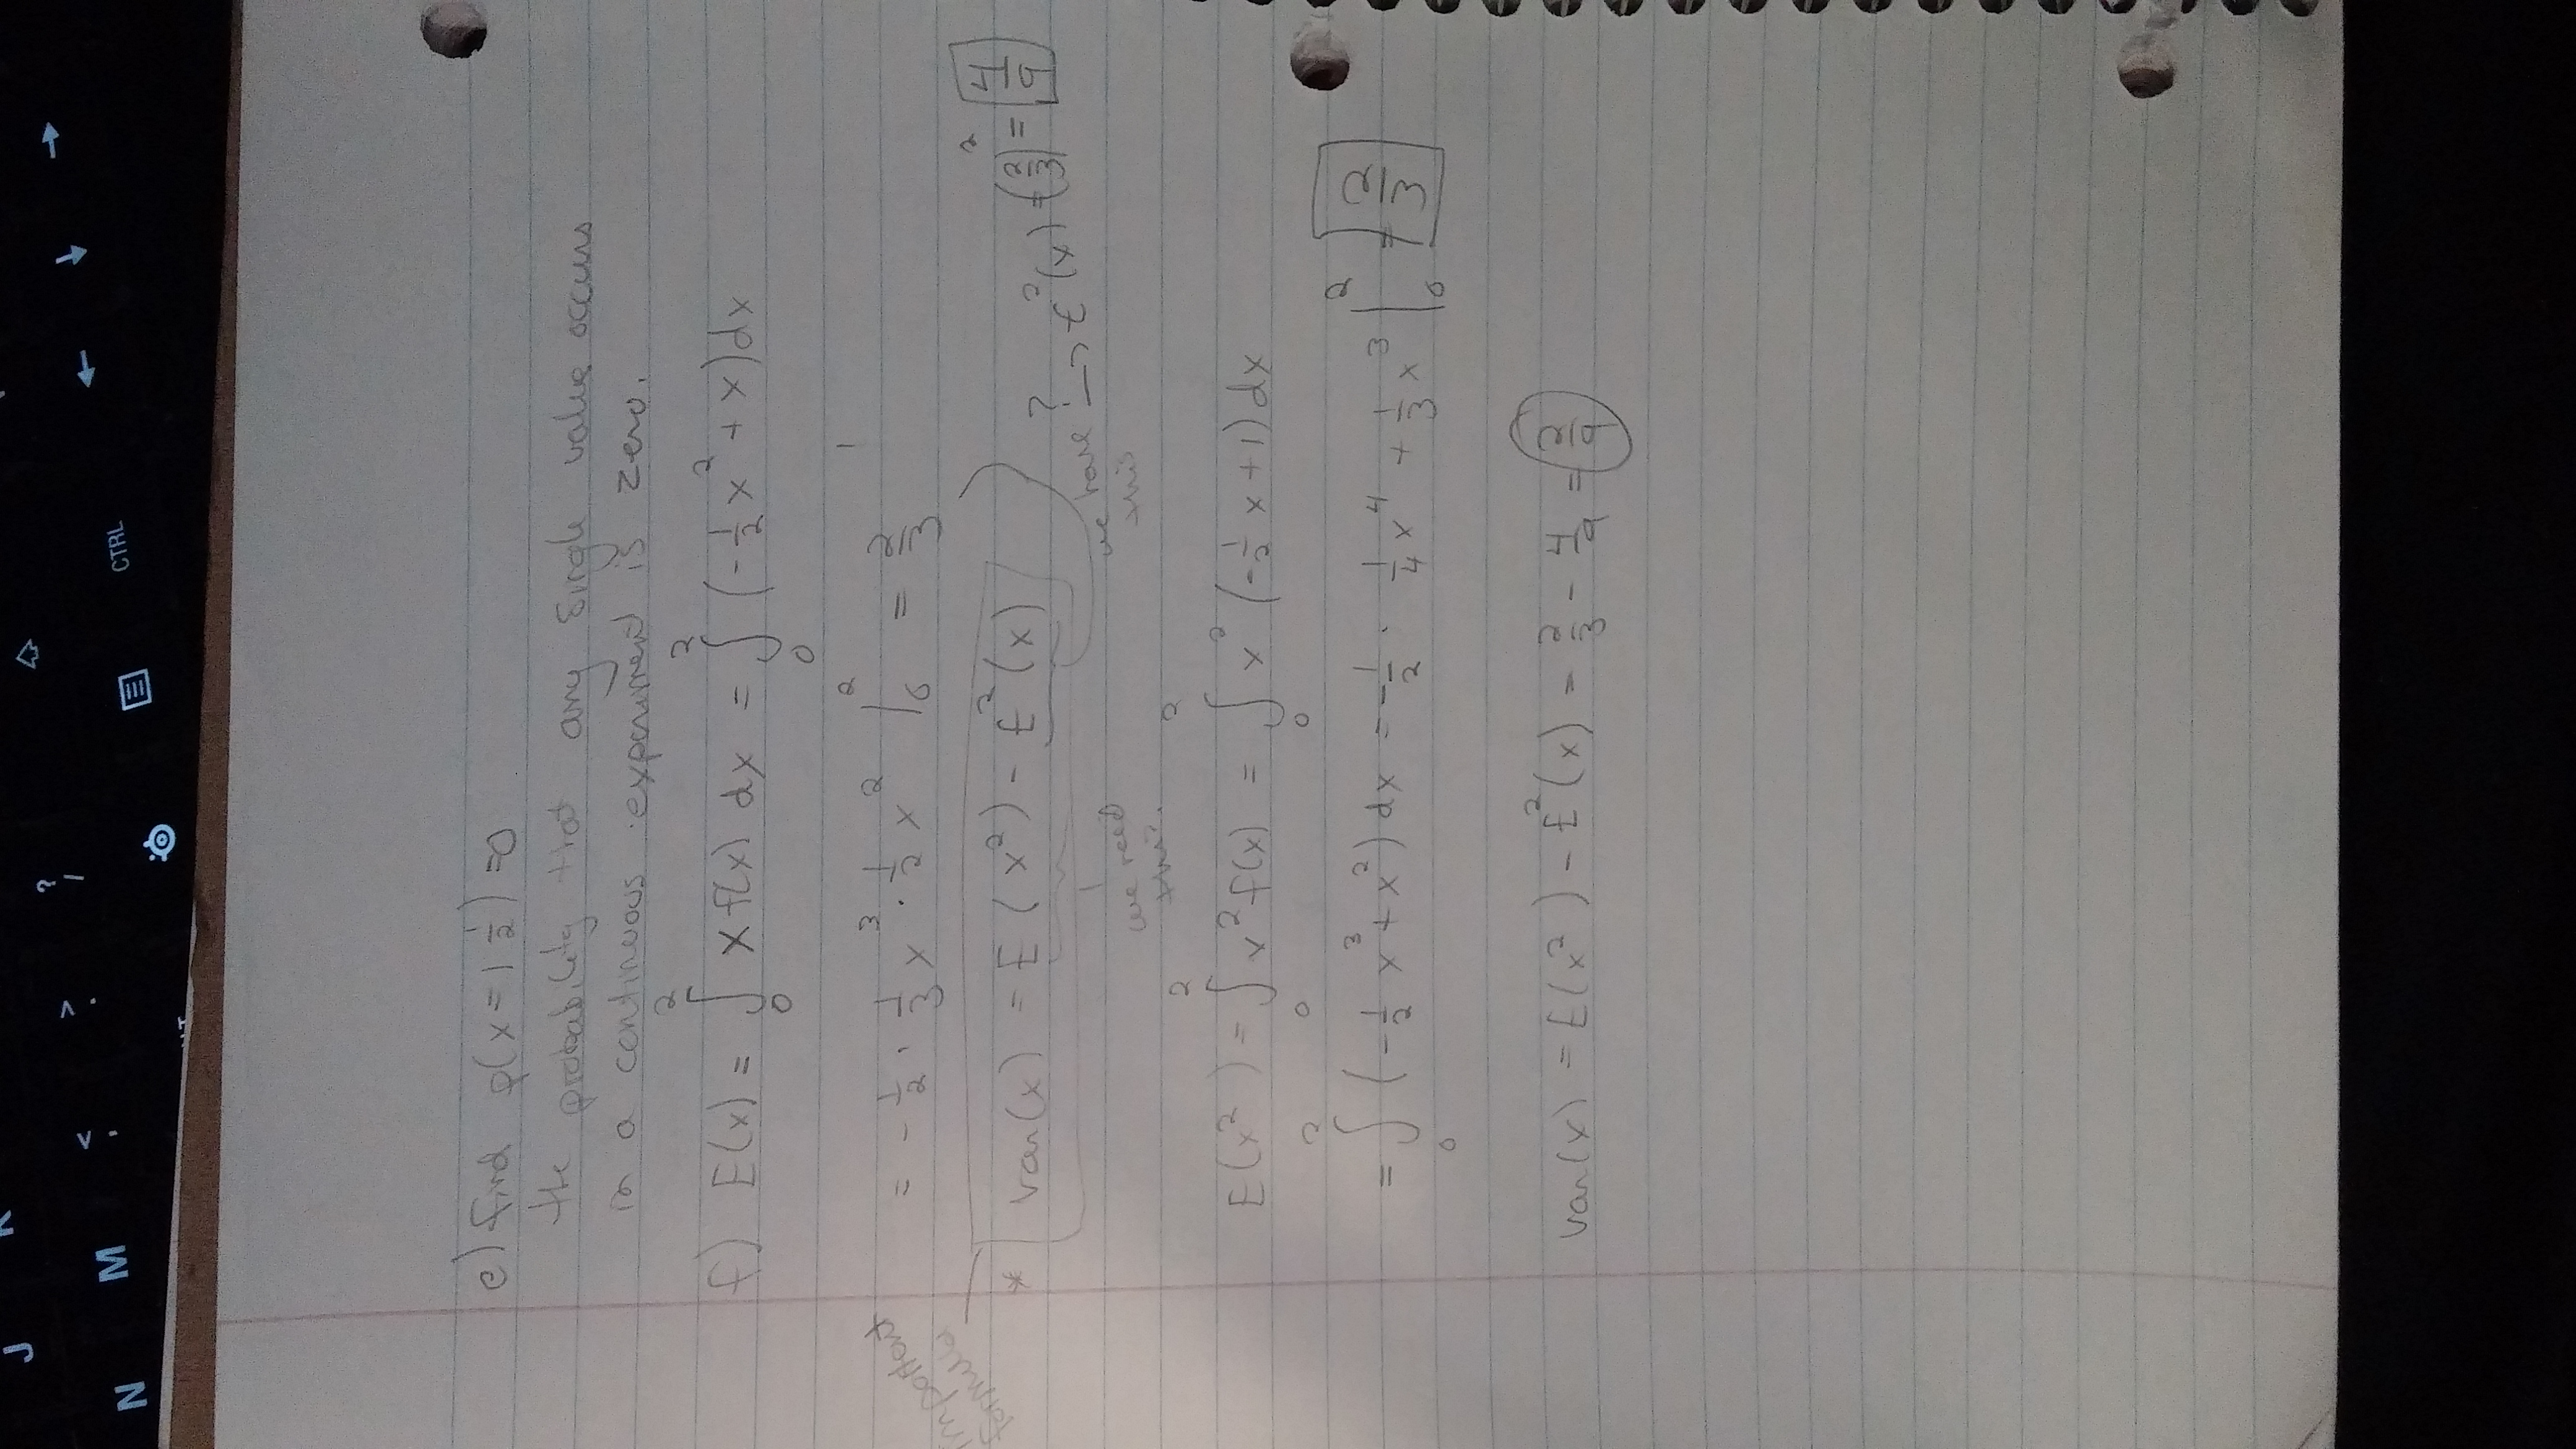 e) find P(x = 1 1/2) = 0
the probability that any single value occurs
in a continuous experiment is zero.
f) E(x) = ∫₀² x f(x) dx = ∫₀² (-1/2 x² + x) dx
= - 1/2 · 1/3 x³ · 1/2 x² |₀² = 2/3
important
formula
* var(x) = E(x²) - E²(x) ? → E²(x) = (2/3)² = 4/9
we need this.
we have this
E(x²) = ∫₀² x² f(x) = ∫₀² x² (-1/2 x + 1) dx
= ∫₀² (-1/2 x³ + x²) dx = -1/2 · 1/4 x⁴ + 1/3 x³ |₀² = 2/3
var(x) = E(x²) - E²(x) = 2/3 - 4/9 = 2/9
CTRL
? /
> .
< ,
M
N
J